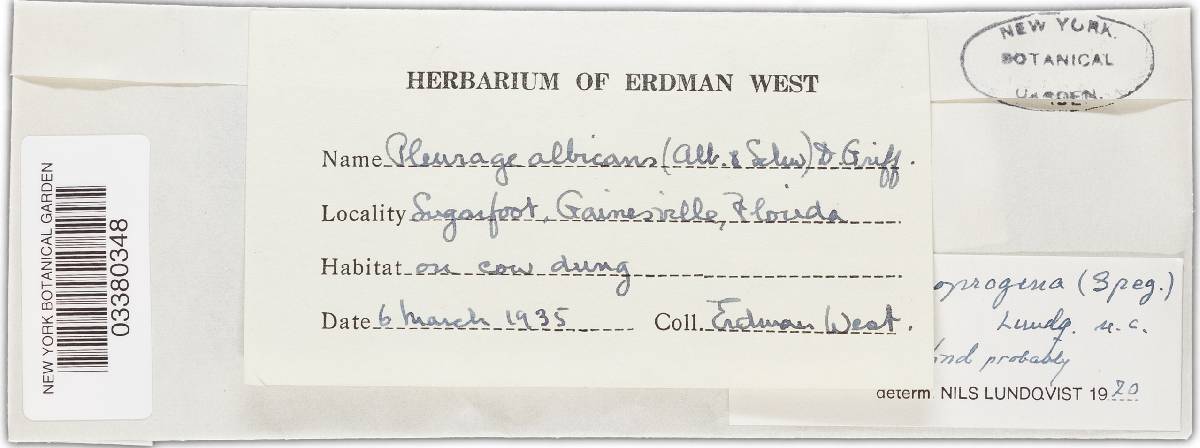 NEW YORK
BOTANICAL
GARDEN.
HERBARIUM OF ERDMAN WEST
Name Pleurage albicans (Alb. & Schw) D. Griff.
Locality Sugarfoot, Gainesville, Florida
Habitat on cow dung
Date 6 March 1935 Coll. Erdman West.
NEW YORK BOTANICAL GARDEN
03380348
oprogena (Speg.)
Lundq. n.c.
and probably
determ. NILS LUNDQVIST 1970